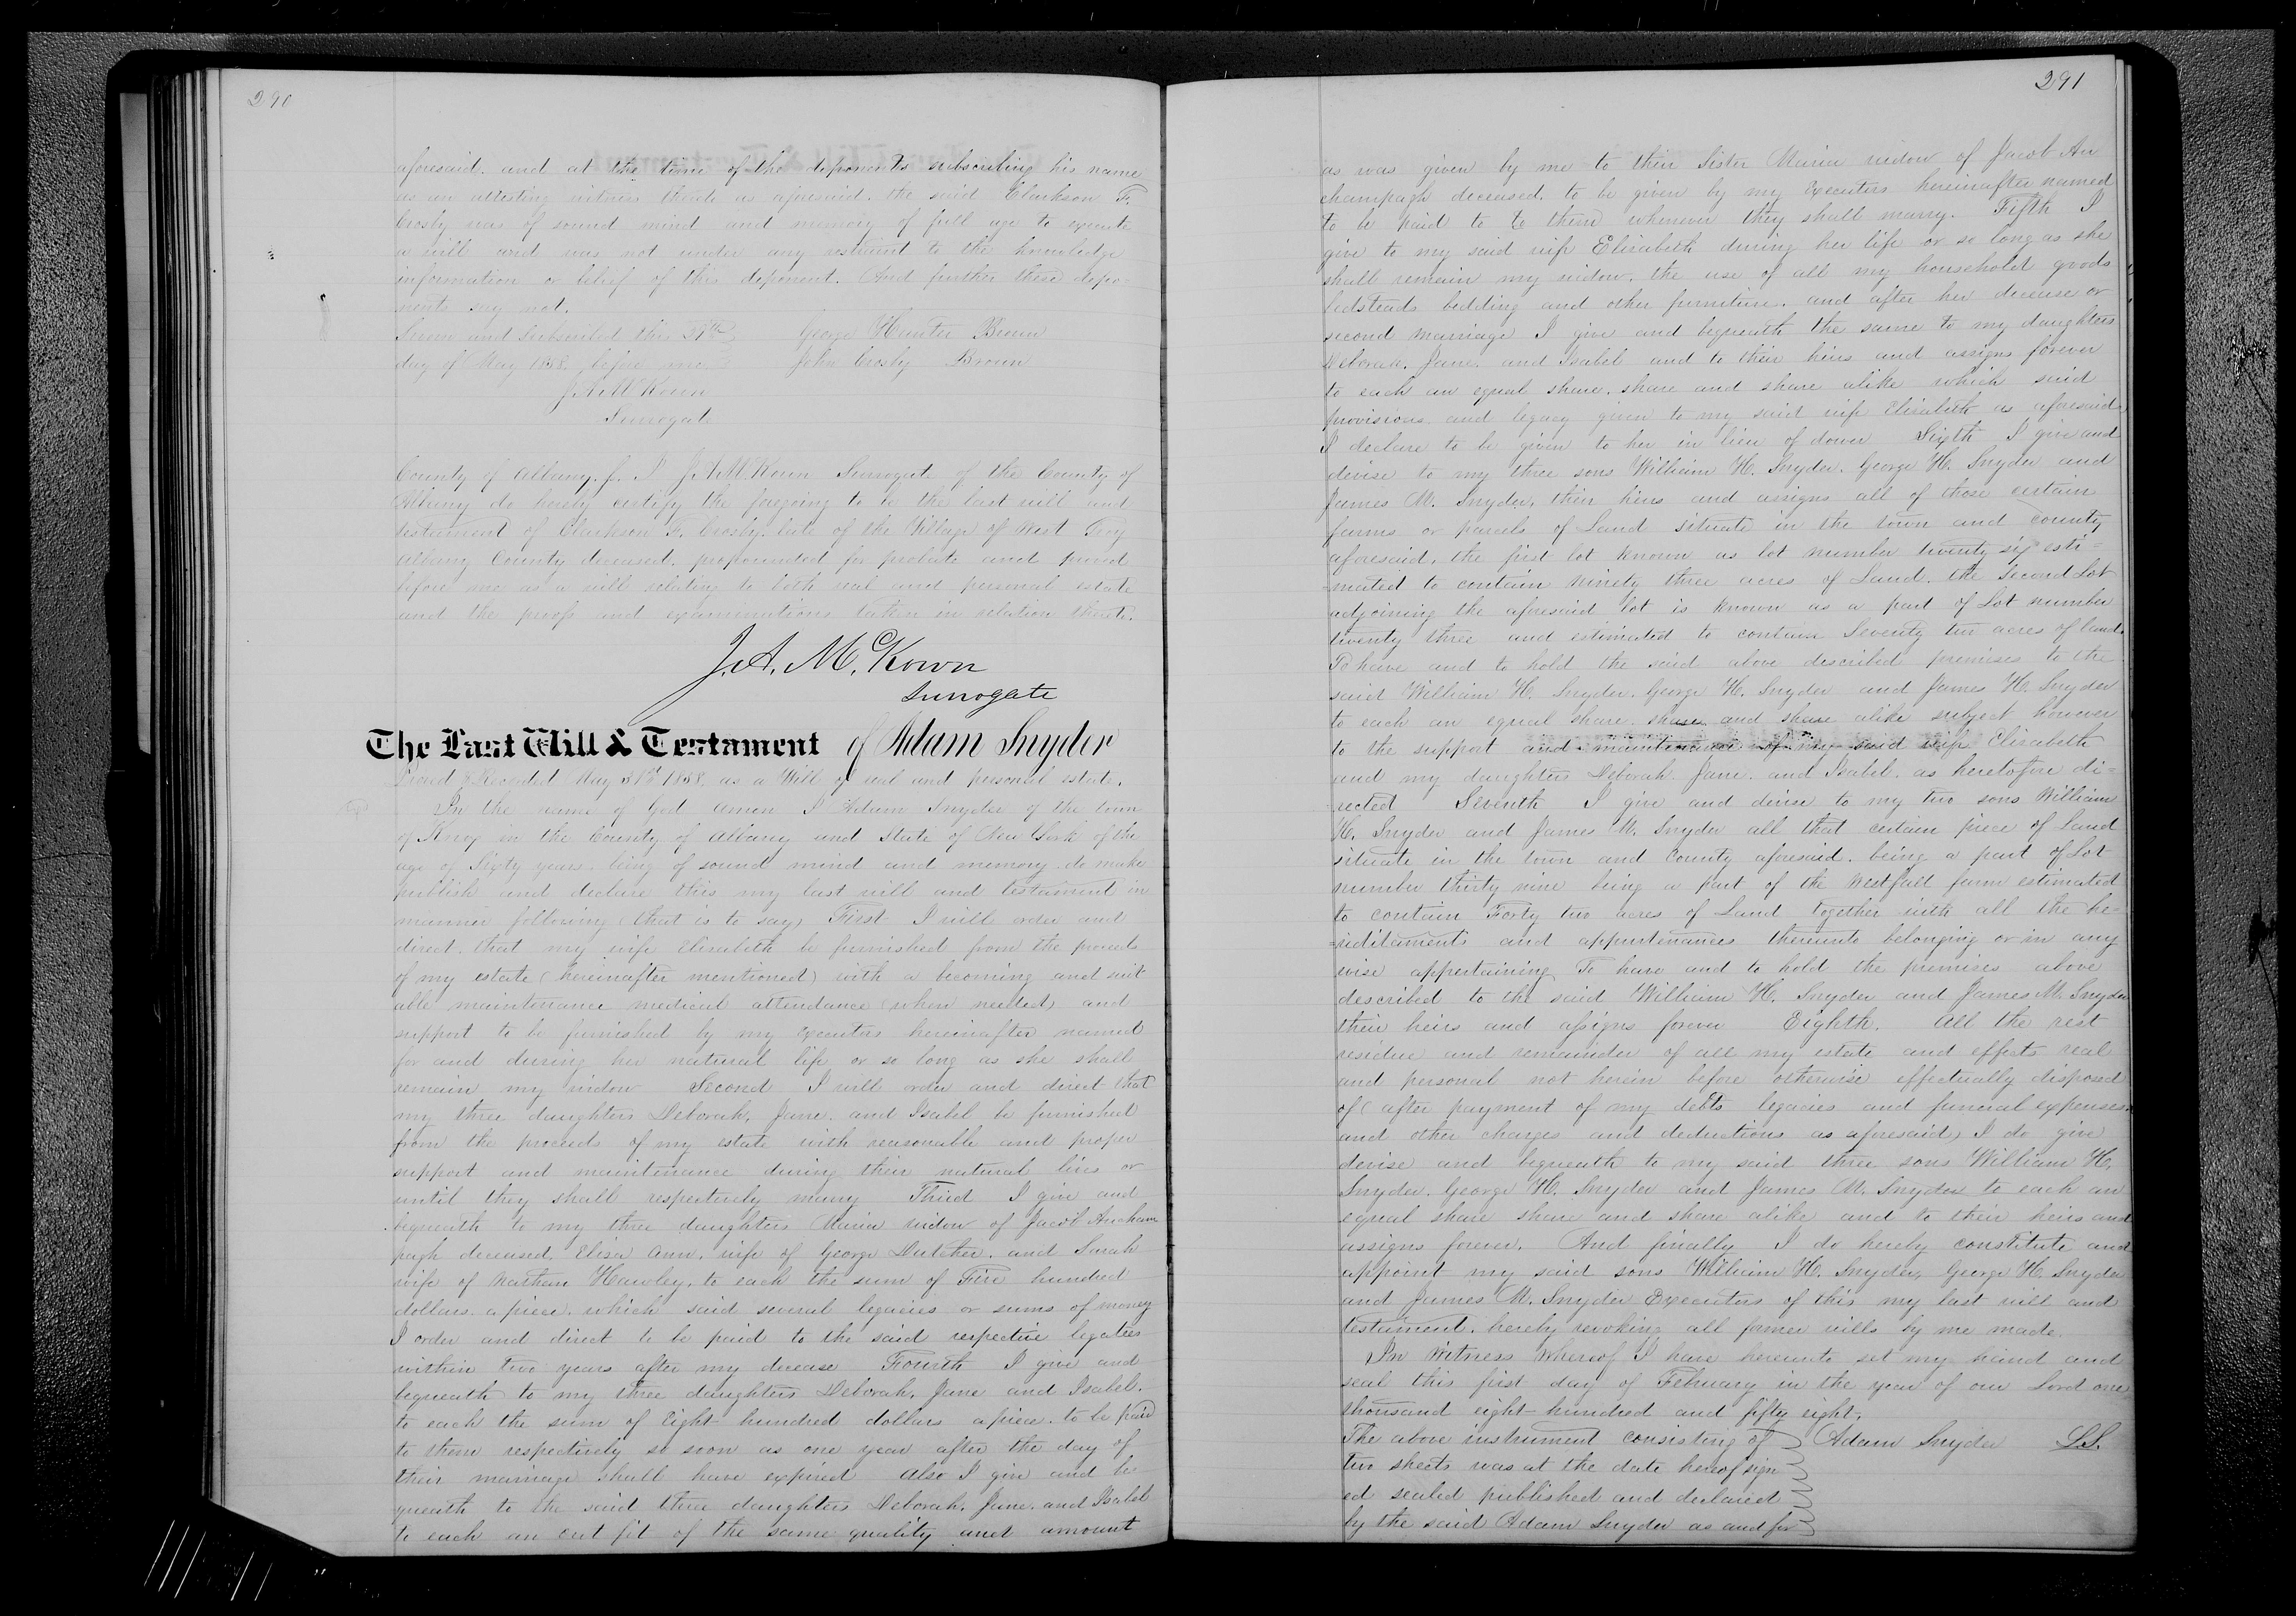 290
aforesaid. and at the time of the deponents subscribing his name
as an attesting witness thereto as aforesaid. the said Clarkson F.
Crosby was of sound mind and memory of full age to execute
a will and was not under any restraint to the knowledge
information or belief of this deponent. And further these depo=
nents say not.
Sworn and Subscribed this 27th George Hunter Brown
day of May 1858. before me John Crosby Brown
J. A. McKown
Surrogate
County of Albany. ss. I J. A. McKown Surrogate of the County of
Albany do hereby certify the foregoing to be the last will and
testament of Clarkson F. Crosby. late of the Village of West Troy
Albany County deceased. propounded for probate and proved
before me as a will relating to both real and personal estate
and the proofs and examinations taken in relation thereto.
J. A. McKown
Surrogate
The Last Will & Testament of Adam Snyder
Proved & Recorded May 31st 1858. as a Will of real and personal estate.
In the name of God Amen I Adam Snyder of the town
of Knox in the County of Albany and State of New York of the
age of Sixty years. being of sound mind and memory do make
publish and declare this my last will and testament in
manner following (that is to say) First I will order and
direct. that my wife Elisabeth be furnished from the proceeds
of my estate (hereinafter mentioned) with a becoming and suit
able maintenance medical attendance (when needed) and
support to be furnished by my executors hereinafter named
for and during her natural life or so long as she shall
remain my widow Second I will order and direct that
my three daughters Deborah, Jane. and Isabel be furnished
from the proceeds of my estate with reasonable and proper
support and maintenance during their natural lives or
until they shall respectively marry Third I give and
bequeath to my three daughters Maria widow of Jacob Aucham
pagh deceased. Eliza Ann. wife of George Dutcher. and Sarah
wife of Nathan Hawley. to each the sum of Five hundred
dollars. apiece. which said several legacies or sums of money
I order and direct to be paid to the said respective legatees
within two years after my decease Fourth I give and
bequeath to my three daughters Deborah, Jane and Isabel.
to each the sum of Eight hundred dollars apiece. to be paid
to them respectively so soon as one year after the day of
their marriage shall have expired Also I give and be
queath to the said three daughters Deborah, Jane. and Isabel
to each an out fit of the same quality and amount
291
as was given by me to their Sister Maria widow of Jacob Au
champagh deceased. to be given by my executors hereinafter named
to be paid to to them whenever they shall marry. Fifth I
give to my said wife Elisabeth during her life or so long as she
shall remain my widow. the use of all my household goods
bedsteads bedding and other furniture. and after her decease or
second marriage I give and bequeath the same to my daughters
Deborah. Jane. and Isabel and to their heirs and assigns forever
to each an equal share. share and share alike which said
provisions and legacy given to my said wife Elisabeth as aforesaid
I declare to be given to her in lieu of dower Sixth I give and
devise to my three sons William H. Snyder. George H. Snyder and
James M. Snyder, their heirs and assigns all of those certain
farms or parcels of Land situate in the town and County
aforesaid. the first lot known as lot number twenty six esti=
=mated to contain ninety three acres of Land. the Second Lot
adjoining the aforesaid lot is known as a part of Lot number
twenty three and estimated to contain Seventy two acres of land.
To have and to hold the said above described premises to the
said William H. Snyder. George H. Snyder and James H. Snyder
to each an equal share. share and share alike subject however
to the support and maintenance of my said wife Elisabeth
and my daughters Deborah Jane. and Isabel. as heretofore di=
=rected Seventh I give and devise to my two sons William
H. Snyder and James M. Snyder all that certain piece of Land
situate in the town and County aforesaid. being a part of Lot
number thirty nine being a part of the Westfall farm estimated
to contain Forty two acres of Land together with all the he=
=reditaments and appurtenances thereunto belonging or in any
wise appertaining To have and to hold the premises above
described to the said William H. Snyder and James M. Snyder
their heirs and assigns forever Eighth. All the rest
residue and remainder of all my estate and effects real
and personal not herein before otherwise effectually disposed
of (after payment of my debts legacies and funeral expenses.
and other charges and deductions as aforesaid) I do give
devise and bequeath to my said three sons William H.
Snyder. George H. Snyder and James M. Snyder to each an
equal share share and share alike and to their heirs and
assigns forever. And finally I do hereby constitute and
appoint my said sons William H. Snyder, George H. Snyder
and James M. Snyder Executors of this my last will and
testament. hereby revoking all former wills by me made.
In Witness Whereof I have hereunto set my hand and
seal this first day of February in the year of our Lord one
thousand eight hundred and fifty eight.
The above instrument consisting of Adam Snyder L.S.
two sheets was at the date hereof sign
ed sealed published and declared
by the said Adam Snyder as and for